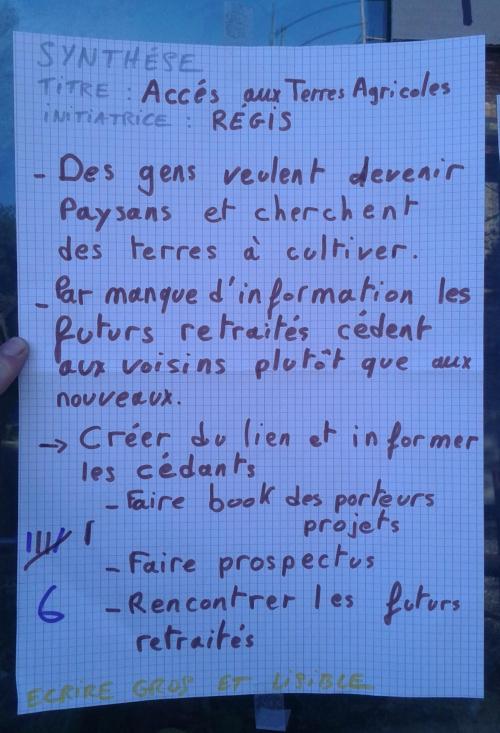 SYNTHÉSE
TITRE : Accés aux Terres Agricoles
INITIATRICE : RÉGIS
- Des gens veulent devenir
Paysans et cherchent
des terres à cultiver.
- Par manque d'information les
futurs retraités cédent
aux voisins plutôt que aux
nouveaux.
→ Créer du lien et informer
les cédants
- Faire book des porteurs
projets
- Faire prospectus
6
- Rencontrer les futurs
retraités
ECRIRE GROS ET LISIBLE